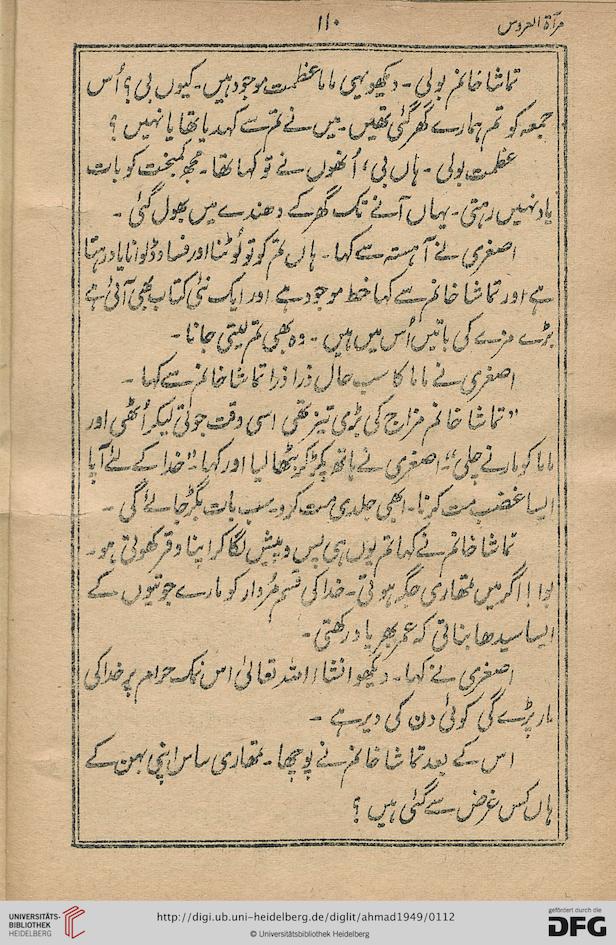 مرآۃ العروس
۱۱۰
تماشا خانم بولی ۔ دیکھو یہی ماما عظمت موجود ہیں ۔ کیوں بی؟ اُس
جمعہ کو تم ہمارے گھر گئی تھیں ۔ میں نے تم سے کہدیا تھا یا نہیں ؟
عظمت بولی ۔ ہاں بی، اُنھوں نے تو کہا تھا ۔ مجھ کمبخت کو بات
یاد نہیں رہتی ۔ یہاں آنے تک گھر کے دھندے میں بھول گئی ۔
اصغری نے آہستہ سے کہا ۔ ہاں تم کو تو لُوٹنا اور فساد ڈلوانا یاد رہتا
ہے اور تماشا خانم سے کہا خط موجود ہے اور ایک نئی کتاب بھی آئی ہے
بڑے مزے کی باتیں اُس میں ہیں ۔ وہ بھی تم لیتی جانا ۔
اصغری نے ماما کا سب حال ذرا ذرا تماشا خانم سے کہا ۔
"تماشا خانم مزاج کی بڑی تیز تھی اسی وقت جوتی لیکر اُٹھی اور
ماما کو مارنے چلی"۔ اصغری نے ہاتھ پکڑ کر بٹھا لیا اور کہا ۔ "خدا کے لئے آپا
ایسا غضب مت کرنا ۔ ابھی جلدی مت کرو ۔ سب بات بگڑ جائے گی ۔
تماشا خانم نے کہا تم یوں ہی پس و پیش لگا کر اپنا وقر کھوتی ہو ۔
بوا! اگر میں تمھاری جگہ ہوتی ۔ خدا کی قسم مُردار کو مارے جوتیوں کے
ایسا سیدھا بناتی کہ عمر بھر یاد رکھتی ۔
اصغری نے کہا ۔ دیکھو انشاء اللہ تعالیٰ اس نمک حرام پر خدا کی
مار پڑے گی کوئی دن کی دیر ہے ۔
اس کے بعد تماشا خانم نے پوچھا ۔ تمھاری ساس اپنی بہن کے
ہاں کس غرض سے گئی ہیں ؟
UNIVERSITÄTS-
BIBLIOTHEK
HEIDELBERG
http://digi.ub.uni-heidelberg.de/diglit/ahmad1949/0112
© Universitätsbibliothek Heidelberg
gefördert durch die
DFG